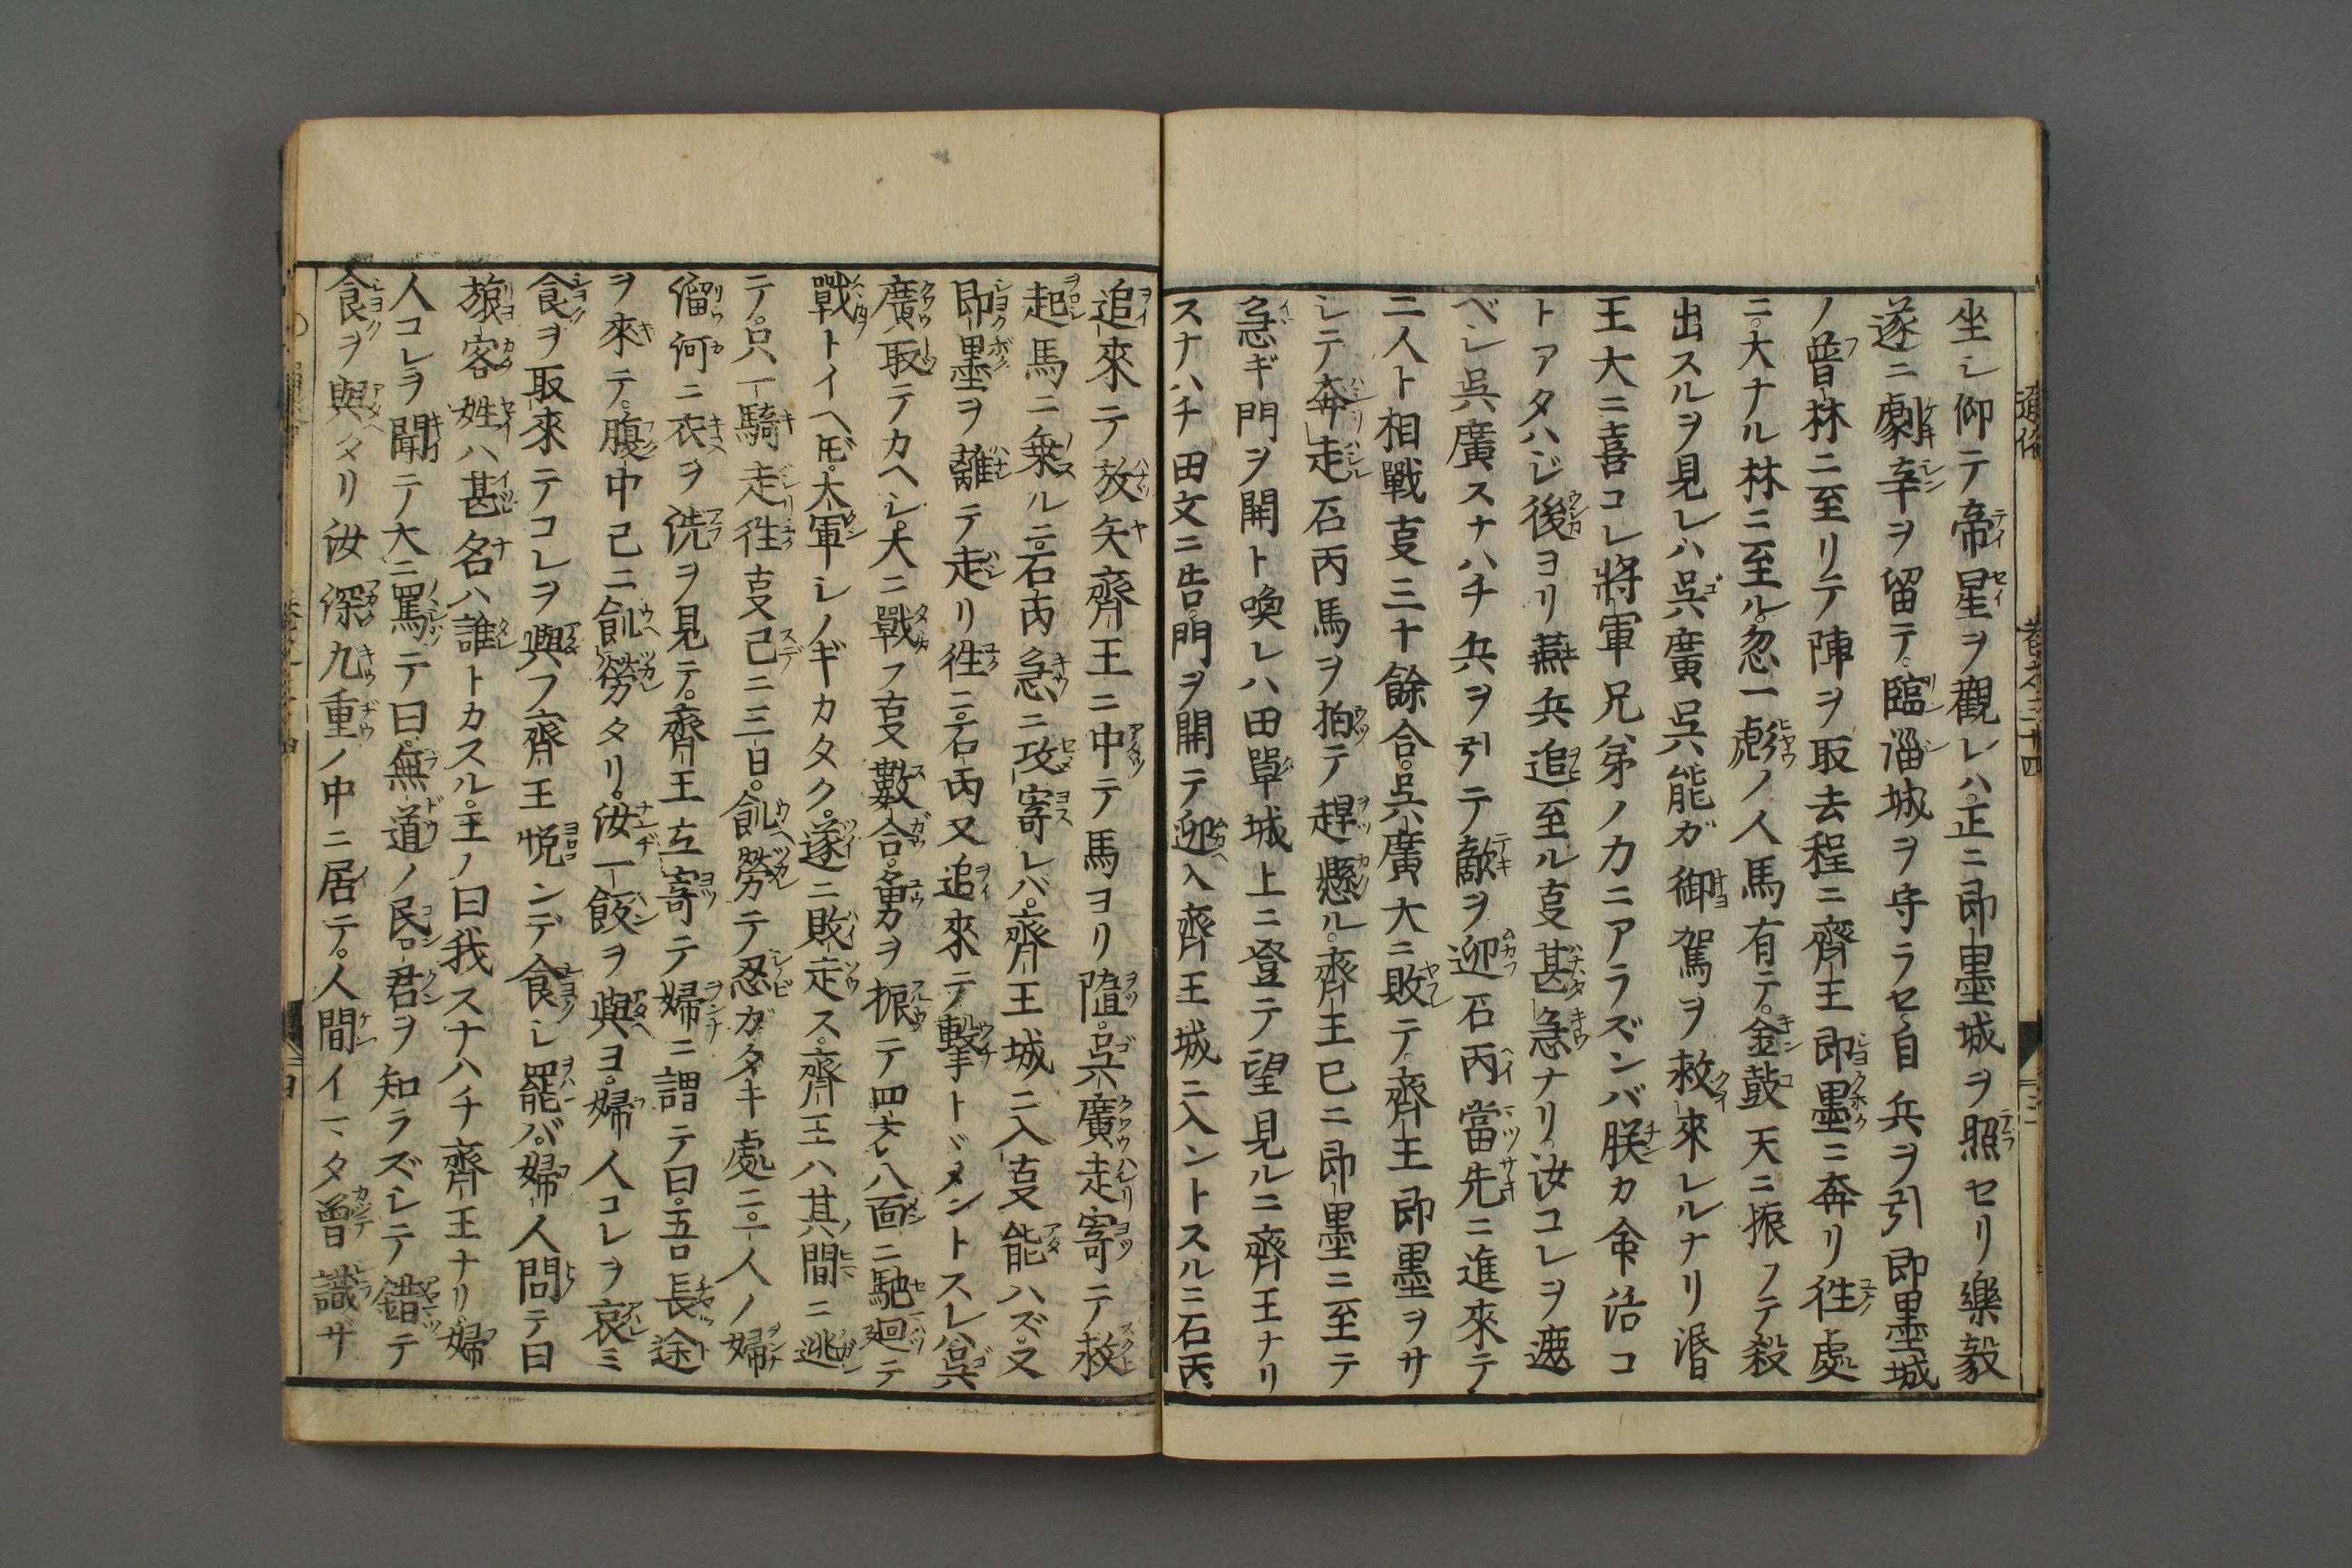 坐シ仰テ帝星ヲ觀レハ正ニ即墨城ヲ照セリ樂毅
遂ニ劇辛ヲ留テ臨淄城ヲ守ラセ自兵ヲ引即墨城
ノ普林ニ至リテ陣ヲ取去程ニ齊王即墨ニ奔リ徃處
ニ大ナル林ニ至ル忽一彪ノ人馬有テ金鼓天ニ振フテ殺
出スルヲ見レハ呉廣呉能ガ御駕ヲ救來レルナリ湣
王大ニ喜コレ將軍兄弟ノ力ニアラズンバ朕カ命活コ
トアタハジ後ヨリ燕兵追至ル㕝甚急ナリ汝コレヲ遮
ベシ呉廣スナハチ兵ヲ引テ敵ヲ迎石丙當先ニ進來テ
二人ト相戰㕝三十餘合呉廣大ニ敗テ齊王即墨ヲサ
シテ奔走石丙馬ヲ拍テ趕懸ル齊王已ニ即墨ニ至テ
急ギ門ヲ開ト喚レハ田單城上ニ登テ望見ルニ齊王ナリ
スナハチ田文ニ告門ヲ開テ迎入齊王城ニ入ントスルニ石丙
追來テ放矢齊王ニ中テ馬ヨリ墮呉廣走寄テ救
起馬ニ乗ルニ石丙急ニ攻寄レバ齊王城ニ入㕝能ハズ又
即墨ヲ離テ走リ徃ニ石丙又追來テ擊トヾメントスレハ呉
廣取テカヘシ大ニ戰フ㕝數合勇ヲ振テ四方八面ニ馳廻テ
戰トイヘ𪜈大軍シノギカタク遂ニ敗走ス齊王ハ其間ニ逃
テ只一騎走徃㕝已ニ三日飢勞テ忍ガタキ處ニ一人ノ婦
溜河ニ衣ヲ洗ヲ見テ齊王立寄テ婦ニ謂テ曰吾長途
ヲ來テ腹中已ニ飢勞タリ汝一飯ヲ與ヨ婦人コレヲ哀ミ
食ヲ取來テコレヲ與フ齊王悦ンデ食シ罷バ婦人問テ曰
旅客姓ハ甚名ハ誰トカスル王ノ曰我スナハチ齊王ナリ婦
人コレヲ聞テ大ニ罵テ曰無道ノ民君ヲ知ラズシテ錯テ
食ヲ與タリ汝深九重ノ中ニ居テ人間イマタ曾識ザ